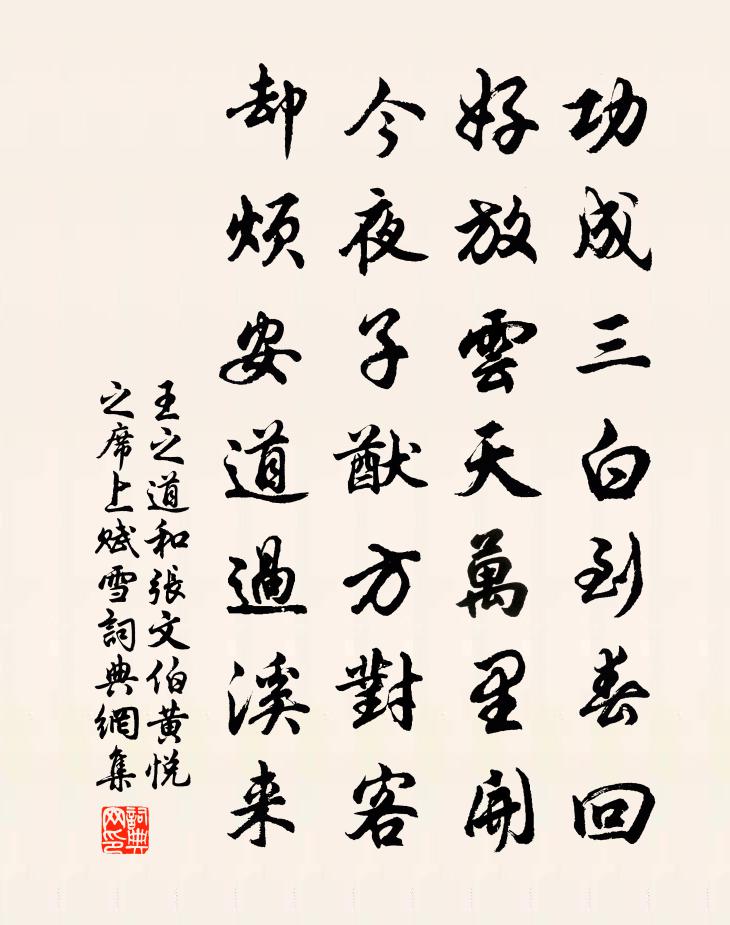 功成三白到春回
好放雲天萬里開
今夜子猷方對客
却煩安道過溪来
王之道和張文伯黄悦
之席上賦雪詞典網集
詞典网印